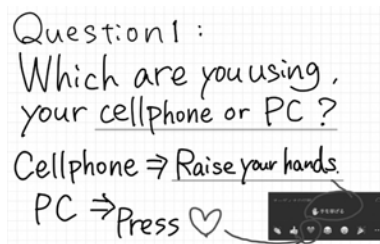 Question1:
Which are you using,
your cellphone or PC?
Cellphone ⇒ Raise your hands.
PC ⇒ Press ♡
手を挙げる